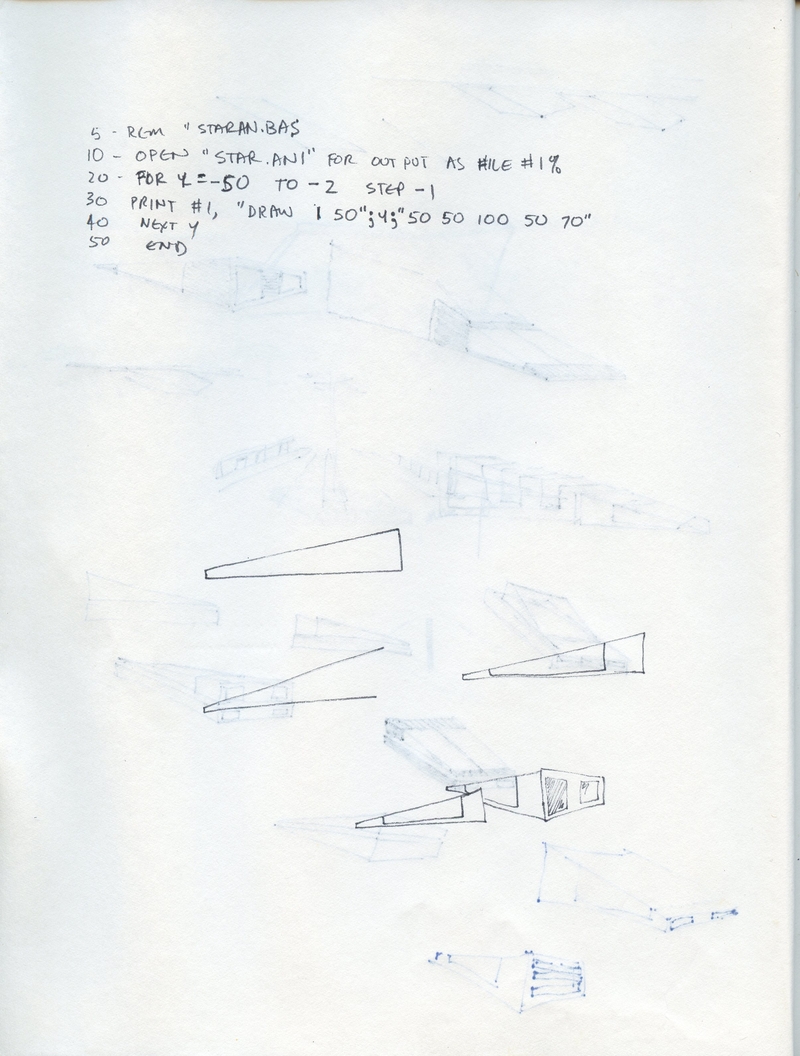 5 - REM "STARAN.BAS
10 - OPEN "STAR.ANI" FOR OUTPUT AS FILE #1%
20 - FOR Y = -50 TO -2 STEP -1
30 PRINT #1, "DRAW 1 50";Y;"50 50 100 50 70"
40 NEXT Y
50 END